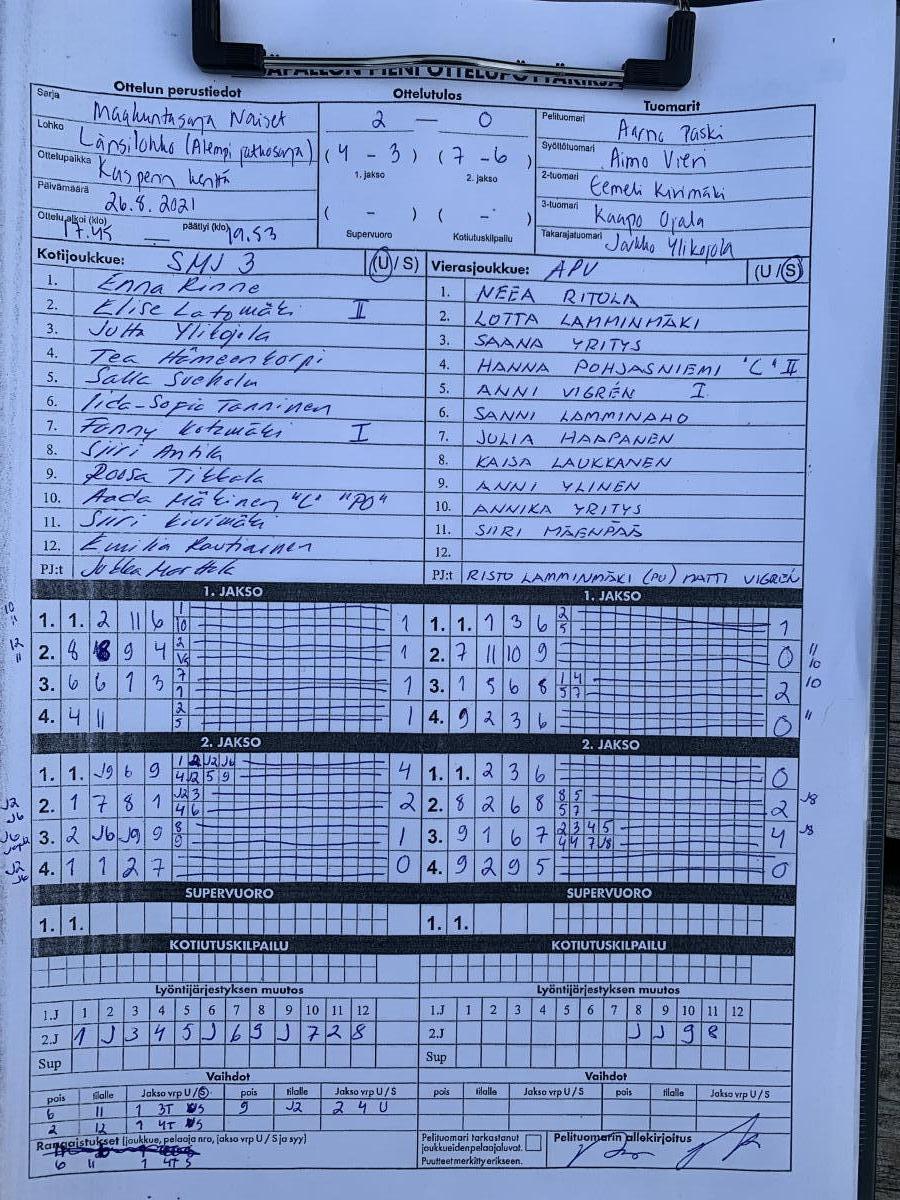 Ottelun perustiedot
Ottelutulos
Tuomarit
Sarja Maakuntasarja Naiset
Lohko Länsilohko (Alempi jatkosarja)
Ottelupaikka Kasperin kenttä
Päivämäärä 26.8.2021
Ottelu alkoi (klo) 17.45 — päättyi (klo) 19.53
2 — 0
( 4 - 3 ) ( 7 - 6 )
1. jakso 2. jakso
( - ) ( - )
Supervuoro Kotiutuskilpailu
Pelituomari Aarno Paski
Syöttötuomari Aimo Vieri
2-tuomari Eemeli Kivimäki
3-tuomari Kaapo Ojala
Takarajatuomari Jarkko Ylikojola
Kotijoukkue: SMJ 3 (U / S)
1. Enna Rinne
2. Elise Latomäki II
3. Jutta Ylikojola
4. Tea Hämeenkorpi
5. Salla
6. Iida-Sofia Tanninen
7. Fanny Kotimäki I
8. Siiri Antila
9. Roosa Tikkala
10. Aada Mäkinen "C" "PO"
11. Siiri Kivimäki
12. Emilia Rautiainen
PJ:t Jukka Marttala
Vierasjoukkue: APU (U / S)
1. NEEA RITOLA
2. LOTTA LAMMINMÄKI
3. SAANA YRITYS
4. HANNA POHJASNIEMI "C" II
5. ANNI VIGRÉN I
6. SANNI LAMMINAHO
7. JULIA HAAPANEN
8. KAISA LAUKKANEN
9. ANNI YLINEN
10. ANNIKA YRITYS
11. SIIRI MÄENPÄÄ
12.
PJ:t RISTO LAMMINMÄKI (PU) MATTI VIGRÉN
1. JAKSO
1. 1. 2 11 6 1 10 1
2. 8 8 9 4 2 1
3. 6 6 1 3 7 1 1
4. 4 11 2 5 1
1. JAKSO
1. 1. 1 3 6 2 5 1
2. 7 11 10 9 0
3. 1 5 6 8 1 4 5 7 2
4. 9 2 3 6 0
2. JAKSO
1. 1. J9 6 9 1 2 J2 J6 4 J2 5 9 4
2. 1 7 8 1 J2 3 4 6 2
3. 2 J6 J9 9 8 9 1
4. 1 1 2 7 0
2. JAKSO
1. 1. 2 3 6 0
2. 8 2 6 8 8 5 5 7 2
3. 9 1 6 7 2 3 4 5 4 4 7 J8 4
4. 9 2 9 5 0
SUPERVUORO
1. 1.
SUPERVUORO
1. 1.
KOTIUTUSKILPAILU
KOTIUTUSKILPAILU
Lyöntijärjestyksen muutos
1.J 1 2 3 4 5 6 7 8 9 10 11 12
2.J 1 J 3 4 5 J 6 9 J 7 2 8
Sup
Lyöntijärjestyksen muutos
1.J 1 2 3 4 5 6 7 8 9 10 11 12
2.J J J 9 8
Sup
Vaihdot
pois tilalle Jakso vrp U / S pois tilalle Jakso vrp U / S
6 11 1 3T S 9 J2 2 4 U
2 12 1 4T S
Vaihdot
pois tilalle Jakso vrp U / S pois tilalle Jakso vrp U / S
Rangaistukset (joukkue, pelaaja nro, jakso vrp U / S ja syy)
6 11 1 4T S
Pelituomari tarkastanut
joukkueiden pelaajaluvat.
Puutteet merkitty erikseen.
Pelituomarin allekirjoitus